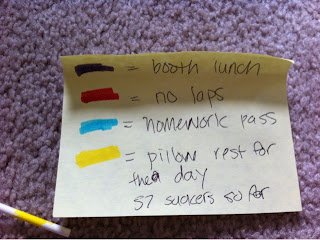 = booth lunch
= no laps
= homework pass
= pillow rest for
the day
57 suckers so far